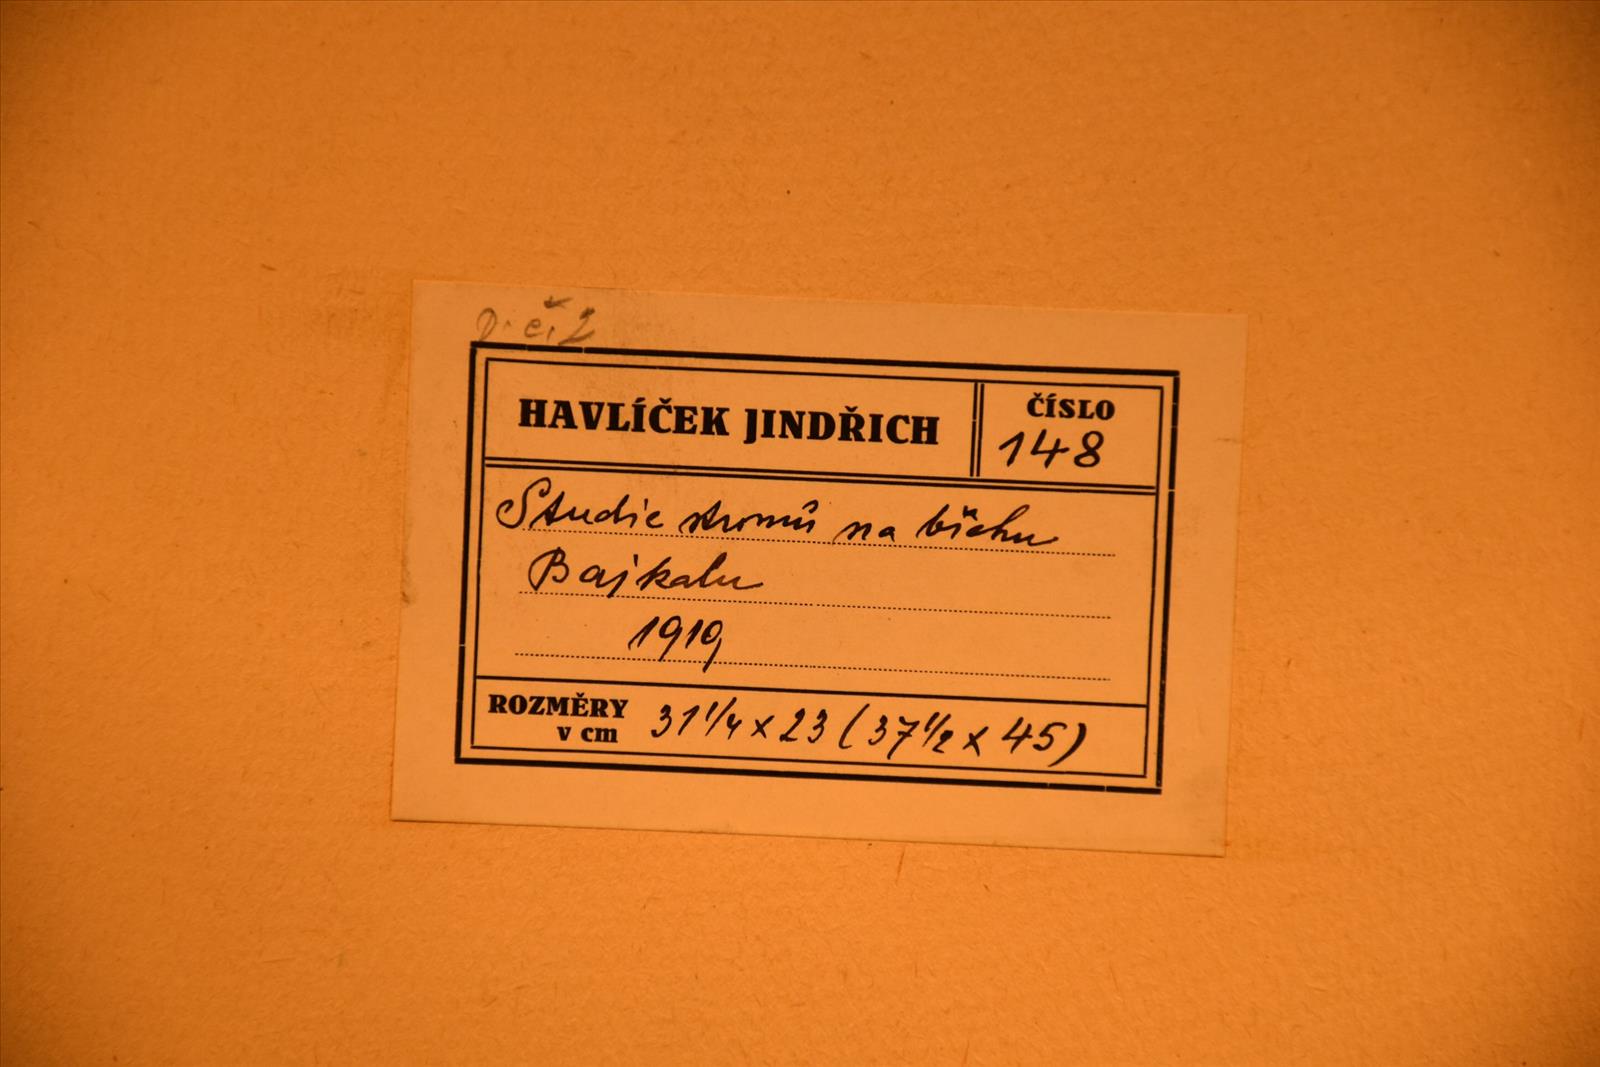 D. č. 2
HAVLÍČEK JINDŘICH
ČÍSLO
148
Studie stromů na břehu
Bajkalu
1919
ROZMĚRY
v cm
31 1/4 x 23 (37 1/2 x 45)